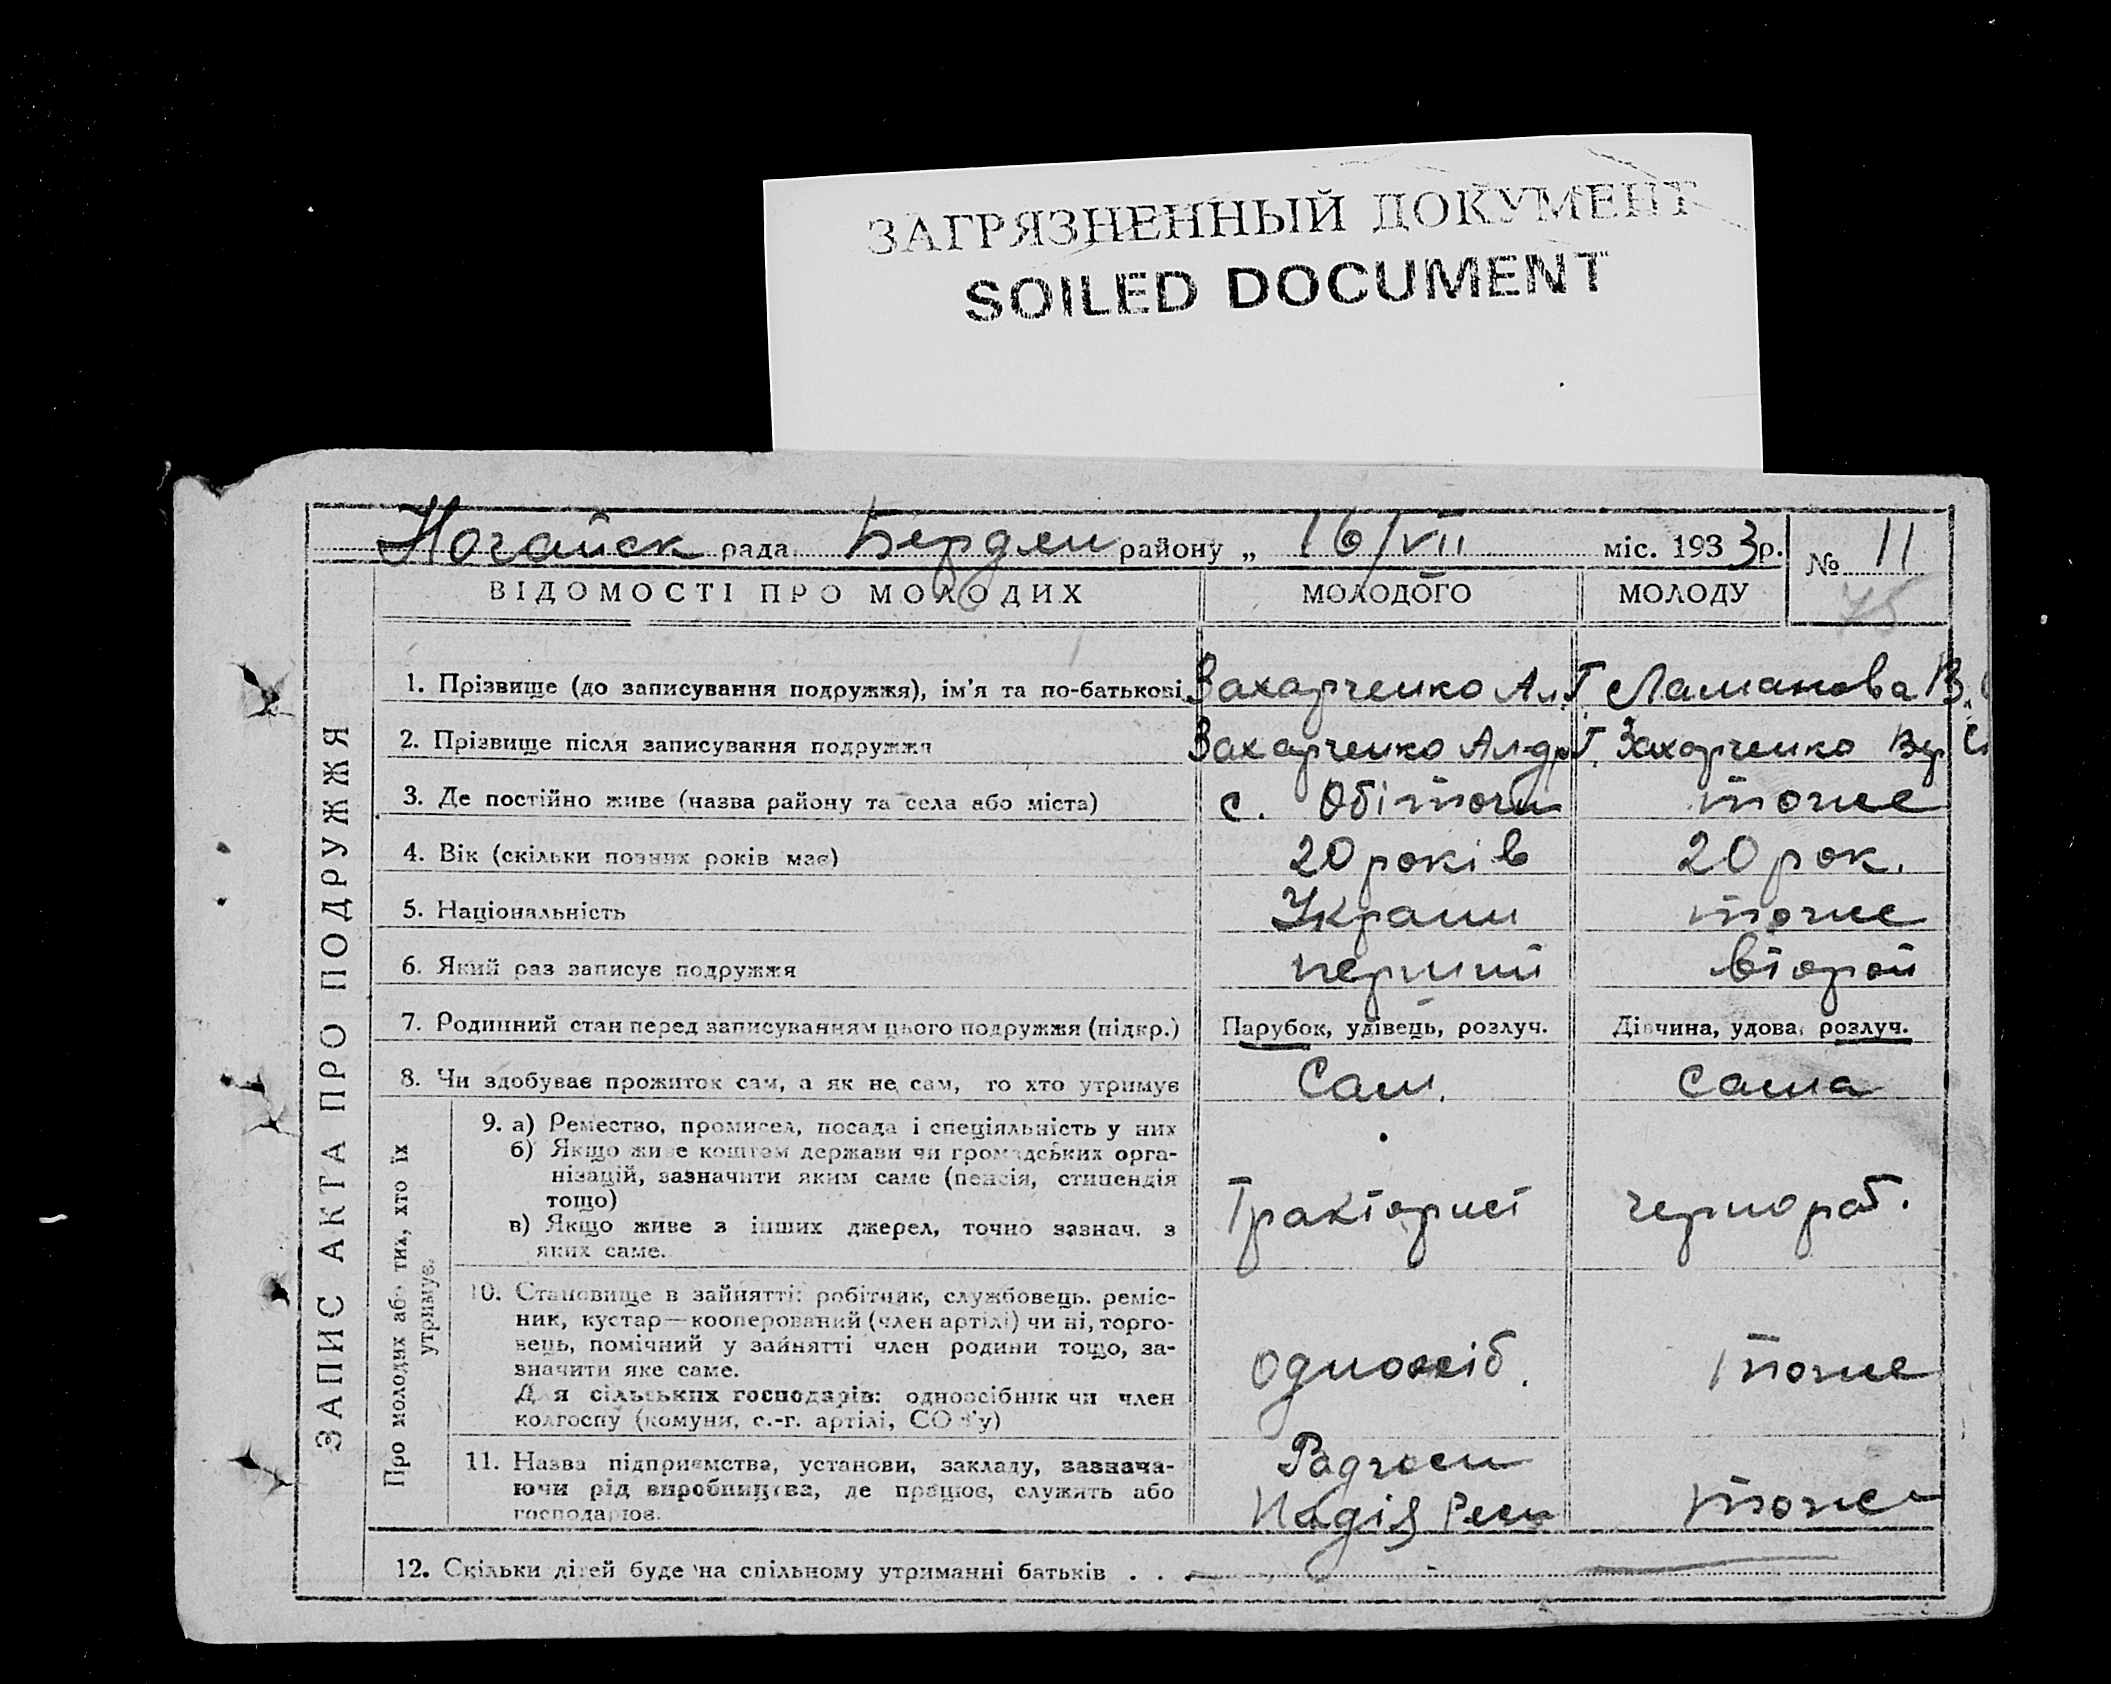 ЗАГРЯЗНЕННЫЙ ДОКУМЕНТ
SOILED DOCUMENT
Ногайск рада Бердян району „ 16/VII міс. 1933р. № 11
75
ВІДОМОСТІ ПРО МОЛОДИХ МОЛОДОГО МОЛОДУ
ЗАПИС АКТА ПРО ПОДРУЖЖЯ
1. Прізвище (до записування подружжя), ім'я та по-батькові Захарченко Ал. Г. Ламанова В.
2. Прізвище після записування подружжя Захарченко Алдр Г. Захарченко Вер
3. Де постійно живе (назва району та села або міста) с. Обіточн тоже
4. Вік (скільки повних років має) 20 років 20 рок.
5. Національність Украин тоже
6. Який раз записує подружжя перший второй
7. Родинний стан перед записуванням цього подружжя (підкр.) Парубок, удівець, розлуч. Дівчина, удова, розлуч.
8. Чи здобуває прожиток сам, а як не сам, то хто утримує Сам. сама
Про молодих або тих, хто їх
утримує.
9. а) Ремество, промисел, посада і спеціяльність у них
б) Якщо живе коштом держави чи громадських орга-
нізацій, зазначити яким саме (пенсія, стипендія
тощо)
в) Якщо живе з інших джерел, точно зазнач. з
яких саме.
Тракторист чернораб.
10. Становище в зайнятті: робітник, службовець, реміс-
ник, кустар—кооперований (член артілі) чи ні, торго-
вець, помічний у зайнятті член родини тощо, за-
значити яке саме.
Для сільських господарів: одноосібник чи член
колгоспу (комуни, с.-г. артілі, СОЗ'у)
одноосіб. тоже
11. Назва підприємства, установи, закладу, зазнача-
ючи рід виробництва, де працює, служить або
господарює.
Радгосп
тоже
12. Скільки дітей буде на спільному утриманні батьків . . .